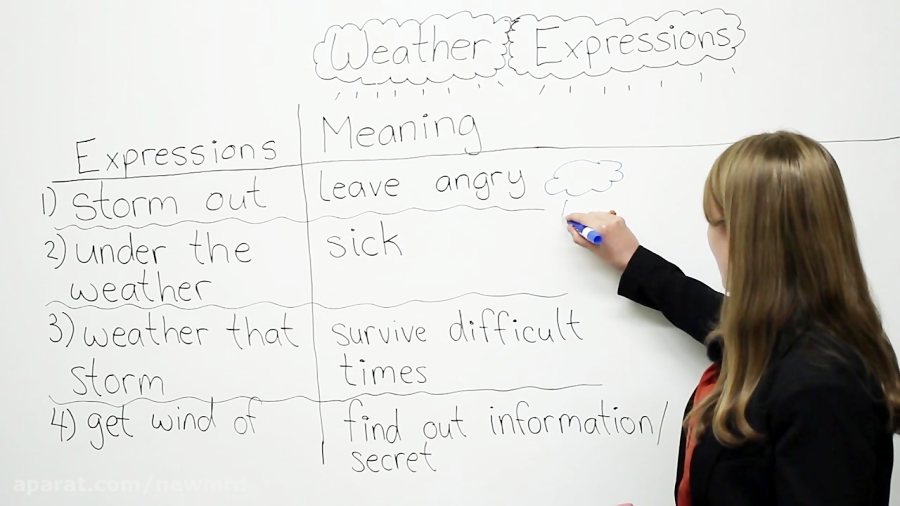 Weather Expressions
Expressions Meaning
1) storm out leave angry
2) under the sick
weather
3) weather that survive difficult
storm times
4) get wind of find out information/
secret